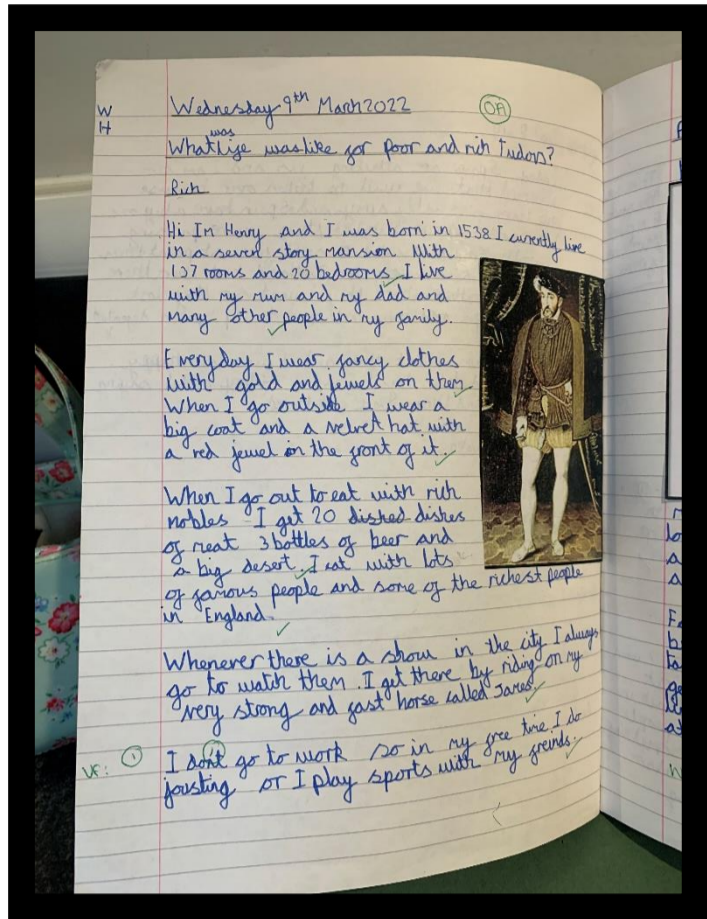 W
H
Wednesday 9th March 2022
OA
was
What life was like for poor and rich Tudors?
Rich
Hi Im Henry and I was born in 1538 I currently live
in a seven story mansion With
137 rooms and 20 bedrooms. I live
with my mum and my dad and
many other people in my family.
Everyday I wear fancy clothes
with gold and jewels on them.
When I go outside I wear a
big coat and a velvet hat with
a red jewel in the front of it.
When I go out to eat with rich
nobles I get 20 dished dishes
of meat 3 bottles of beer and
a big desert. I eat with lots
of famous people and some of the richest people
in England.
Whenever there is a show in the city I always
go to watch them. I get there by riding on my
very strong and fast horse called James.
VF: 1
I don't go to work so in my free time I do
jousting or I play sports with my freinds.